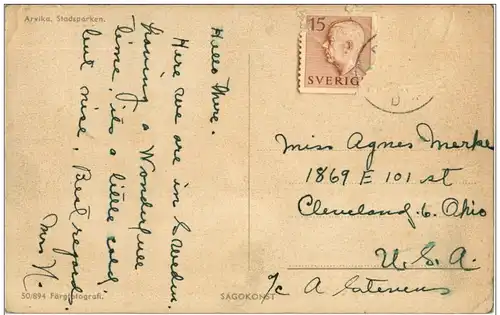 Arvika. Stadsparken.
Hello there.
Here we are in Sweden.
having a Wonderfull
time, its a little cold
but nice. Best regards
Mrs N.
50/894 Färgfotografi.
SAGOKONST
15
SVERIGE
D
Miss Agnes Merke
1869 E 101 st
Cleveland. 6. Ohio
U. S. A.
c/o A